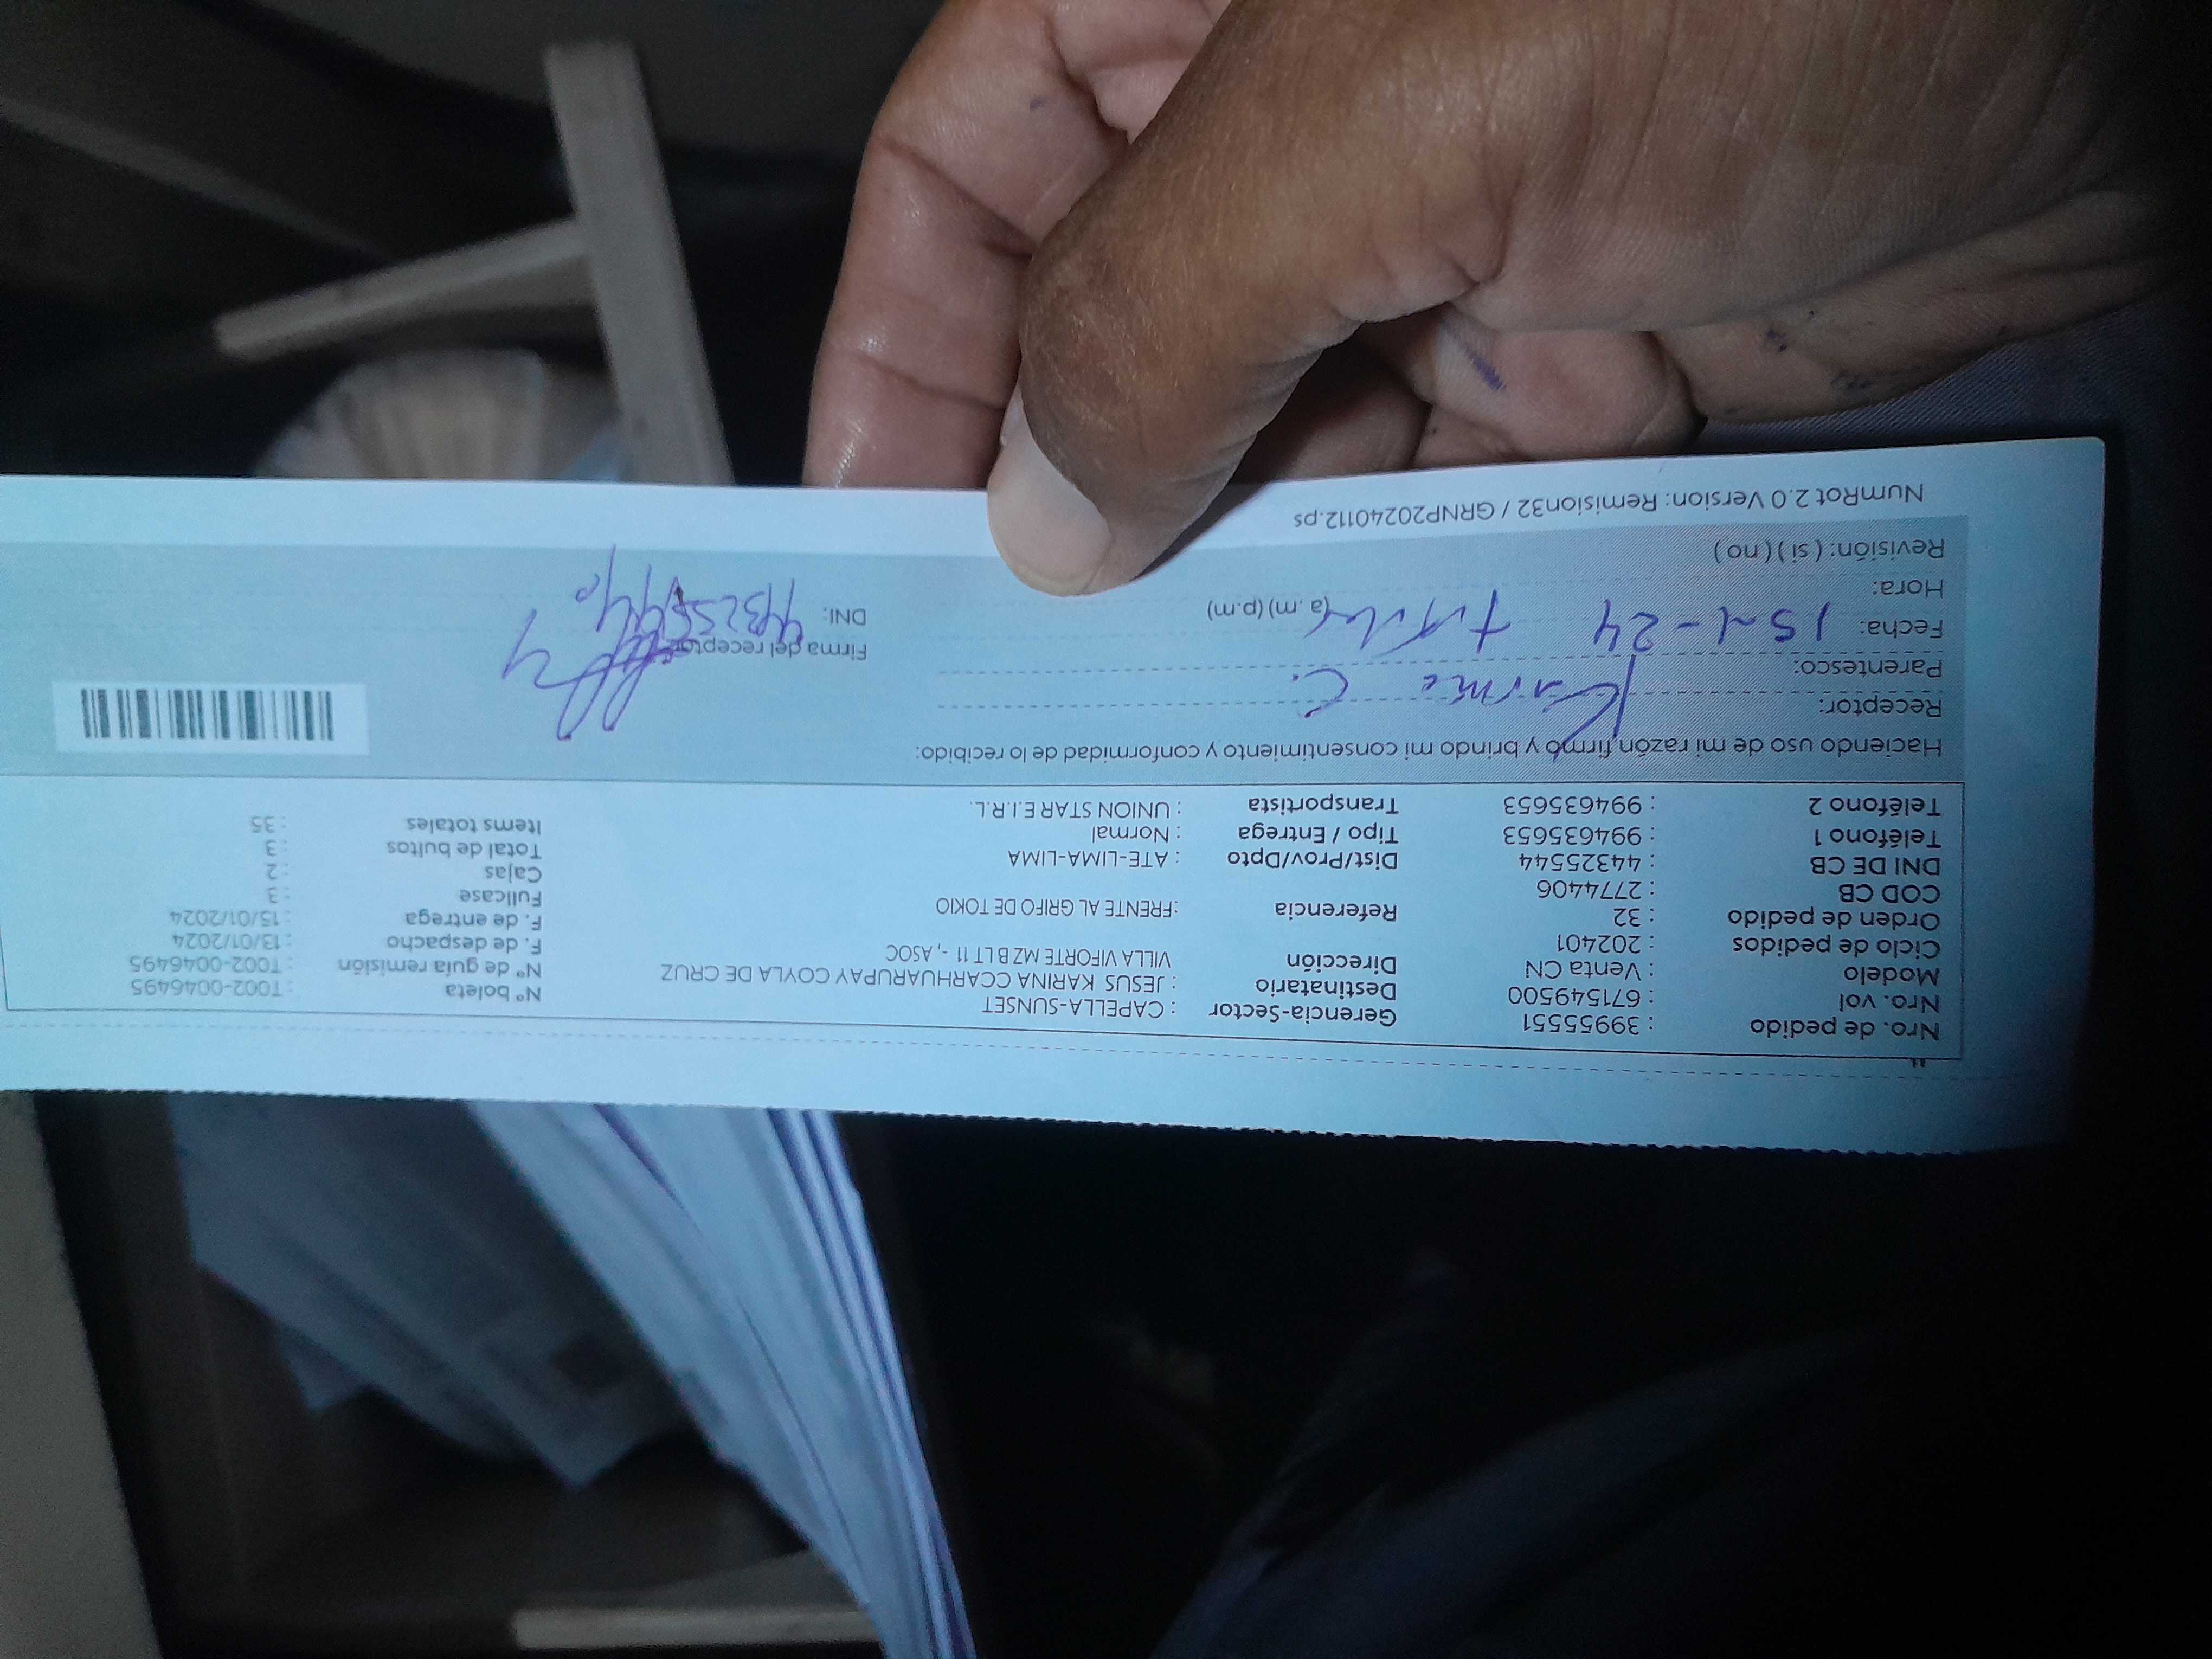 Nro. de pedido : 39955551 Gerencia-Sector : CAPELLA-SUNSET Nº boleta : T002-0046495
Nro. vol : 671549500 Destinatario : JESUS KARINA CCARHUARUPAY COYLA DE CRUZ Nº de guía remisión : T002-0046495
Modelo : Venta CN Dirección VILLA VIFORTE MZ B LT 11 -, ASOC F. de despacho : 13/01/2024
Ciclo de pedidos : 202401 F. de entrega : 15/01/2024
Orden de pedido : 32 Referencia :FRENTE AL GRIFO DE TOKIO Fullcase : 3
COD CB : 2774406 Cajas : 2
DNI DE CB : 44325544 Dist/Prov/Dpto : ATE-LIMA-LIMA Total de bultos : 3
Teléfono 1 : 994635653 Tipo / Entrega : Normal Items totales : 35
Teléfono 2 : 994635653 Transportista : UNION STAR E.I.R.L.
Haciendo uso de mi razón, firmo y brindo mi consentimiento y conformidad de lo recibido:
Receptor: C.
Parentesco:
Firma del receptor
Fecha: 15-1-24
Hora: (a. m) (p.m) DNI:
Revisión: ( si ) ( no )
NumRot 2.0 Version: Remision32 / GRNP20240112.ps